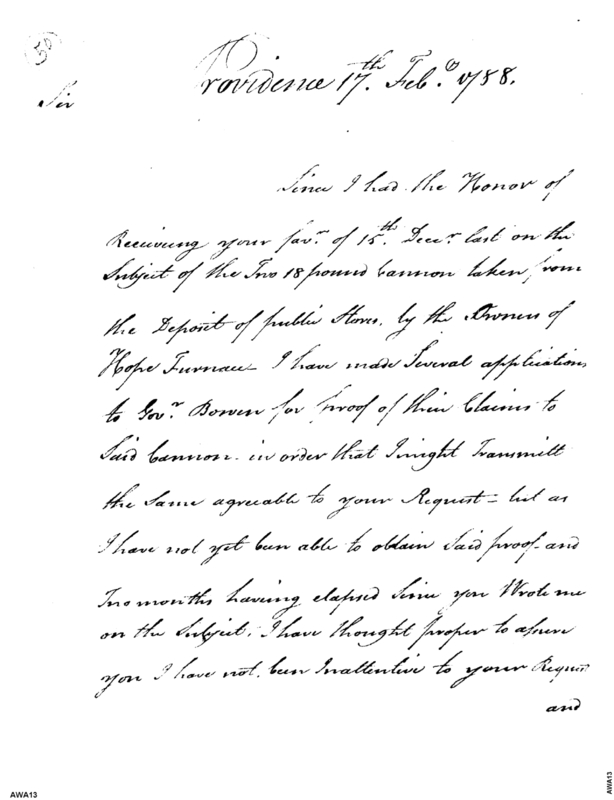 50
Providence 17th. Feby. 1788.
Sir
Since I had the Honor of
Receiving your favr. of 15th. Decr. last on the
Subject of the Two 18 pound Cannon taken from
the Deposit of public Stores, by the Owners of
Hope Furnace I have made Several applications
to Govr. Bowen for proof of their Claims to
Said Cannon in order that I might Transmitt
the Same agreeable to your Request - but as
I have not yet been able to obtain Said proof - and
Two months having elapsed Since you Wrote me
on the Subject, I have thought proper to assure
you I have not been Inattentive to your Request
and
AWA13
AWA13